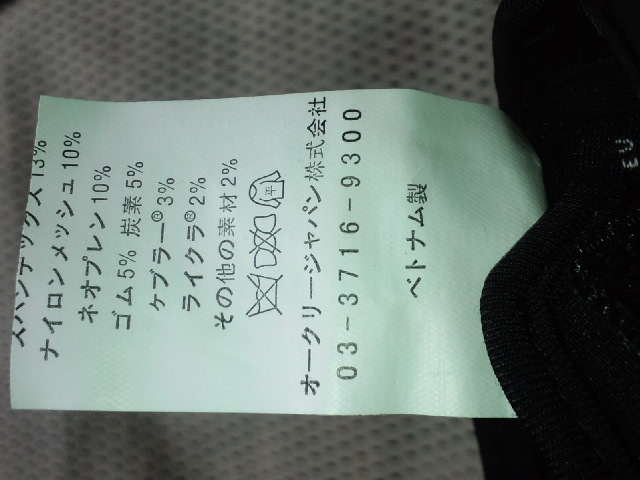 スパンデックス 13%
ナイロンメッシュ 10%
ネオプレン 10%
ゴム 5% 炭素 5%
ケブラー® 3%
ライクラ® 2%
その他の素材 2%
平
オークリージャパン株式会社
03-3716-9300
ベトナム製
EU